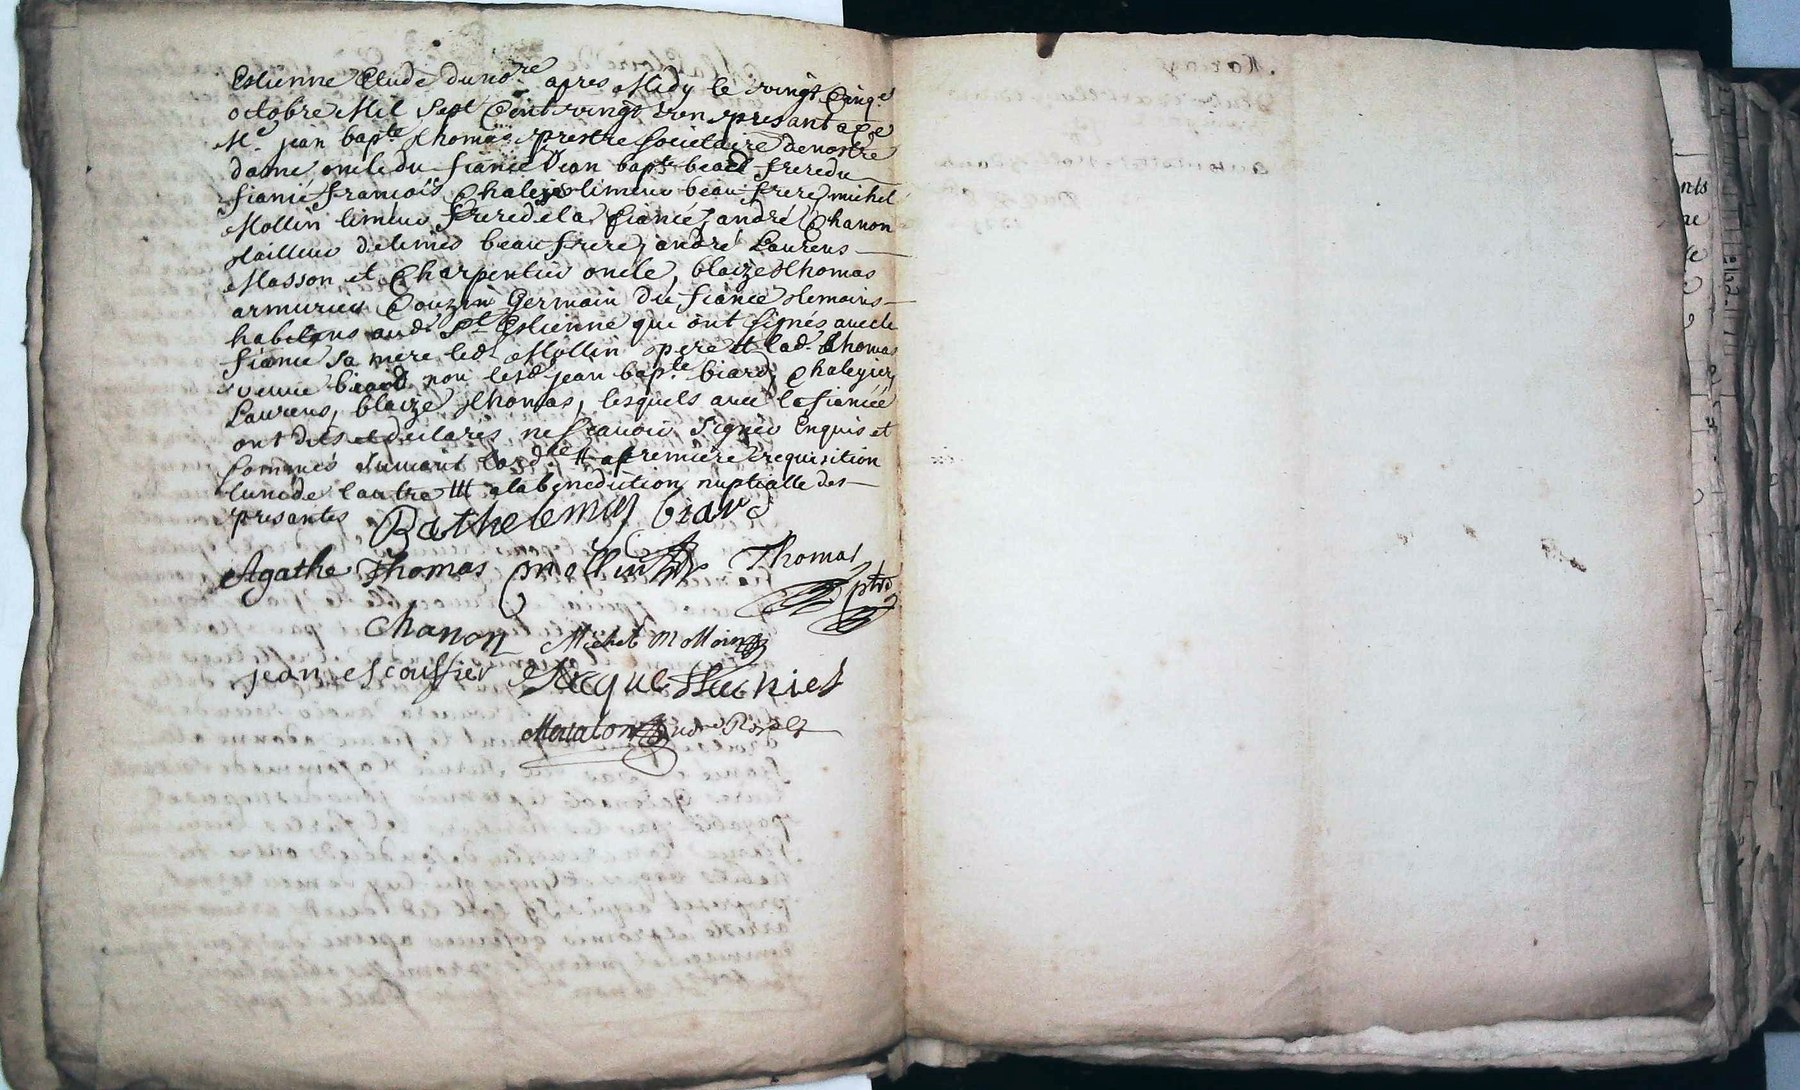 Estienne Etude du nore apres Midy le vingt Cinqe
octobre Mil Sept Cent vingt presant a ce
Me jean bapte thomas prestre Societaire de nostre
dame oncle du fiancé Jean bapte beard frere du
fiancé françois Chaleyer limeur beau frere, michel
Mollin limeur frere de la fiancée, andré Chanon
tailleur de limes beau frere, andré Laurens
Masson et Charpentier oncle, blaize thomas
armurier Couzin Germain du fiancé temoins
habitans aud. St Estienne qui ont signés avec le
fiancé sa mere led. Mollin pere et lad. thomas
veuve biard non lesd. jean bapte biard, chaleyier,
Laurens, blaize thomas, lesquels avec la fiancée
ont dits et declarés ne scavoir signer Enquis et
sommés suivant lord.ce # a premiere requisition
lun de lautre ## a la benediction nuptialle des
presantes Bathelemy biard
Agathe thomas mollin Thomas
ptre
Chanon Michel mollin
jean escoffier Jacque